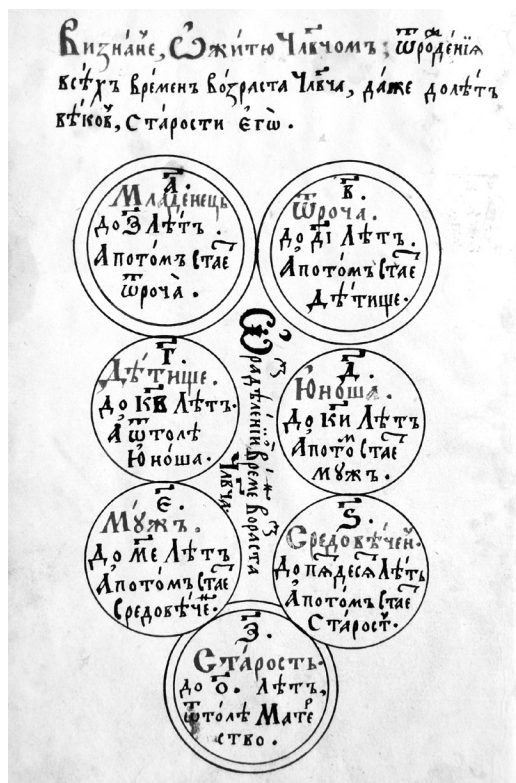 Визна́нїе, Ѡ жи́тїю Члв҃чомъ; Ѿроде́нїѧ
всѣ́хъ вре́менъ во́зраста Члв҃ча, да́же до лѣ́тъ
вѣ́ковъ, Ста́рости єгѡ̀.
А҃.
Младе́нецъ
до З҃ Лѣ́тъ.
А пото́мъ Стає
ѿроча̀.
В҃.
Ѿроча.
до д҃і Лѣ́тъ.
А пото́мъ Стає
Дѣ́тище.
Г҃.
Дѣ́тище.
до к҃в Лѣ́тъ.
А ѿто́лѣ
Ю́ноша.
Д҃.
Ю́ноша.
до к҃и Лѣ́тъ
А пото́м Стає
мꙋжъ.
Ѡ раздѣле́нїй време
возраста
Члв҃ча
Є҃.
Мꙋ́жъ.
до м҃е Лѣ́тъ
А пото́мъ Стає
Средовѣ́че.
Ѕ҃.
Средовѣ́чей.
До пѧдесѧ Лѣ́тъ
А пото́мъ Стає
Ста́рост.
З҃.
Ста́рость.
до о҃. лѣ́тъ,
ѿто́лѣ Мате́р
ство.